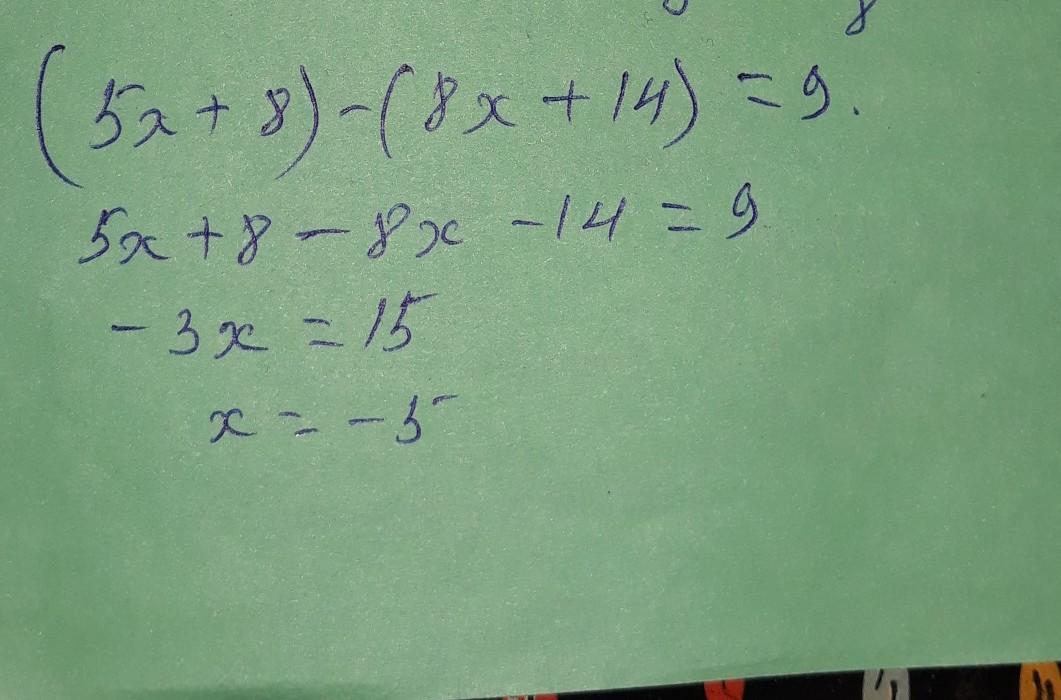 (5x + 8) - (8x + 14) = 9.
5x + 8 - 8x - 14 = 9
- 3x = 15
x = - 5